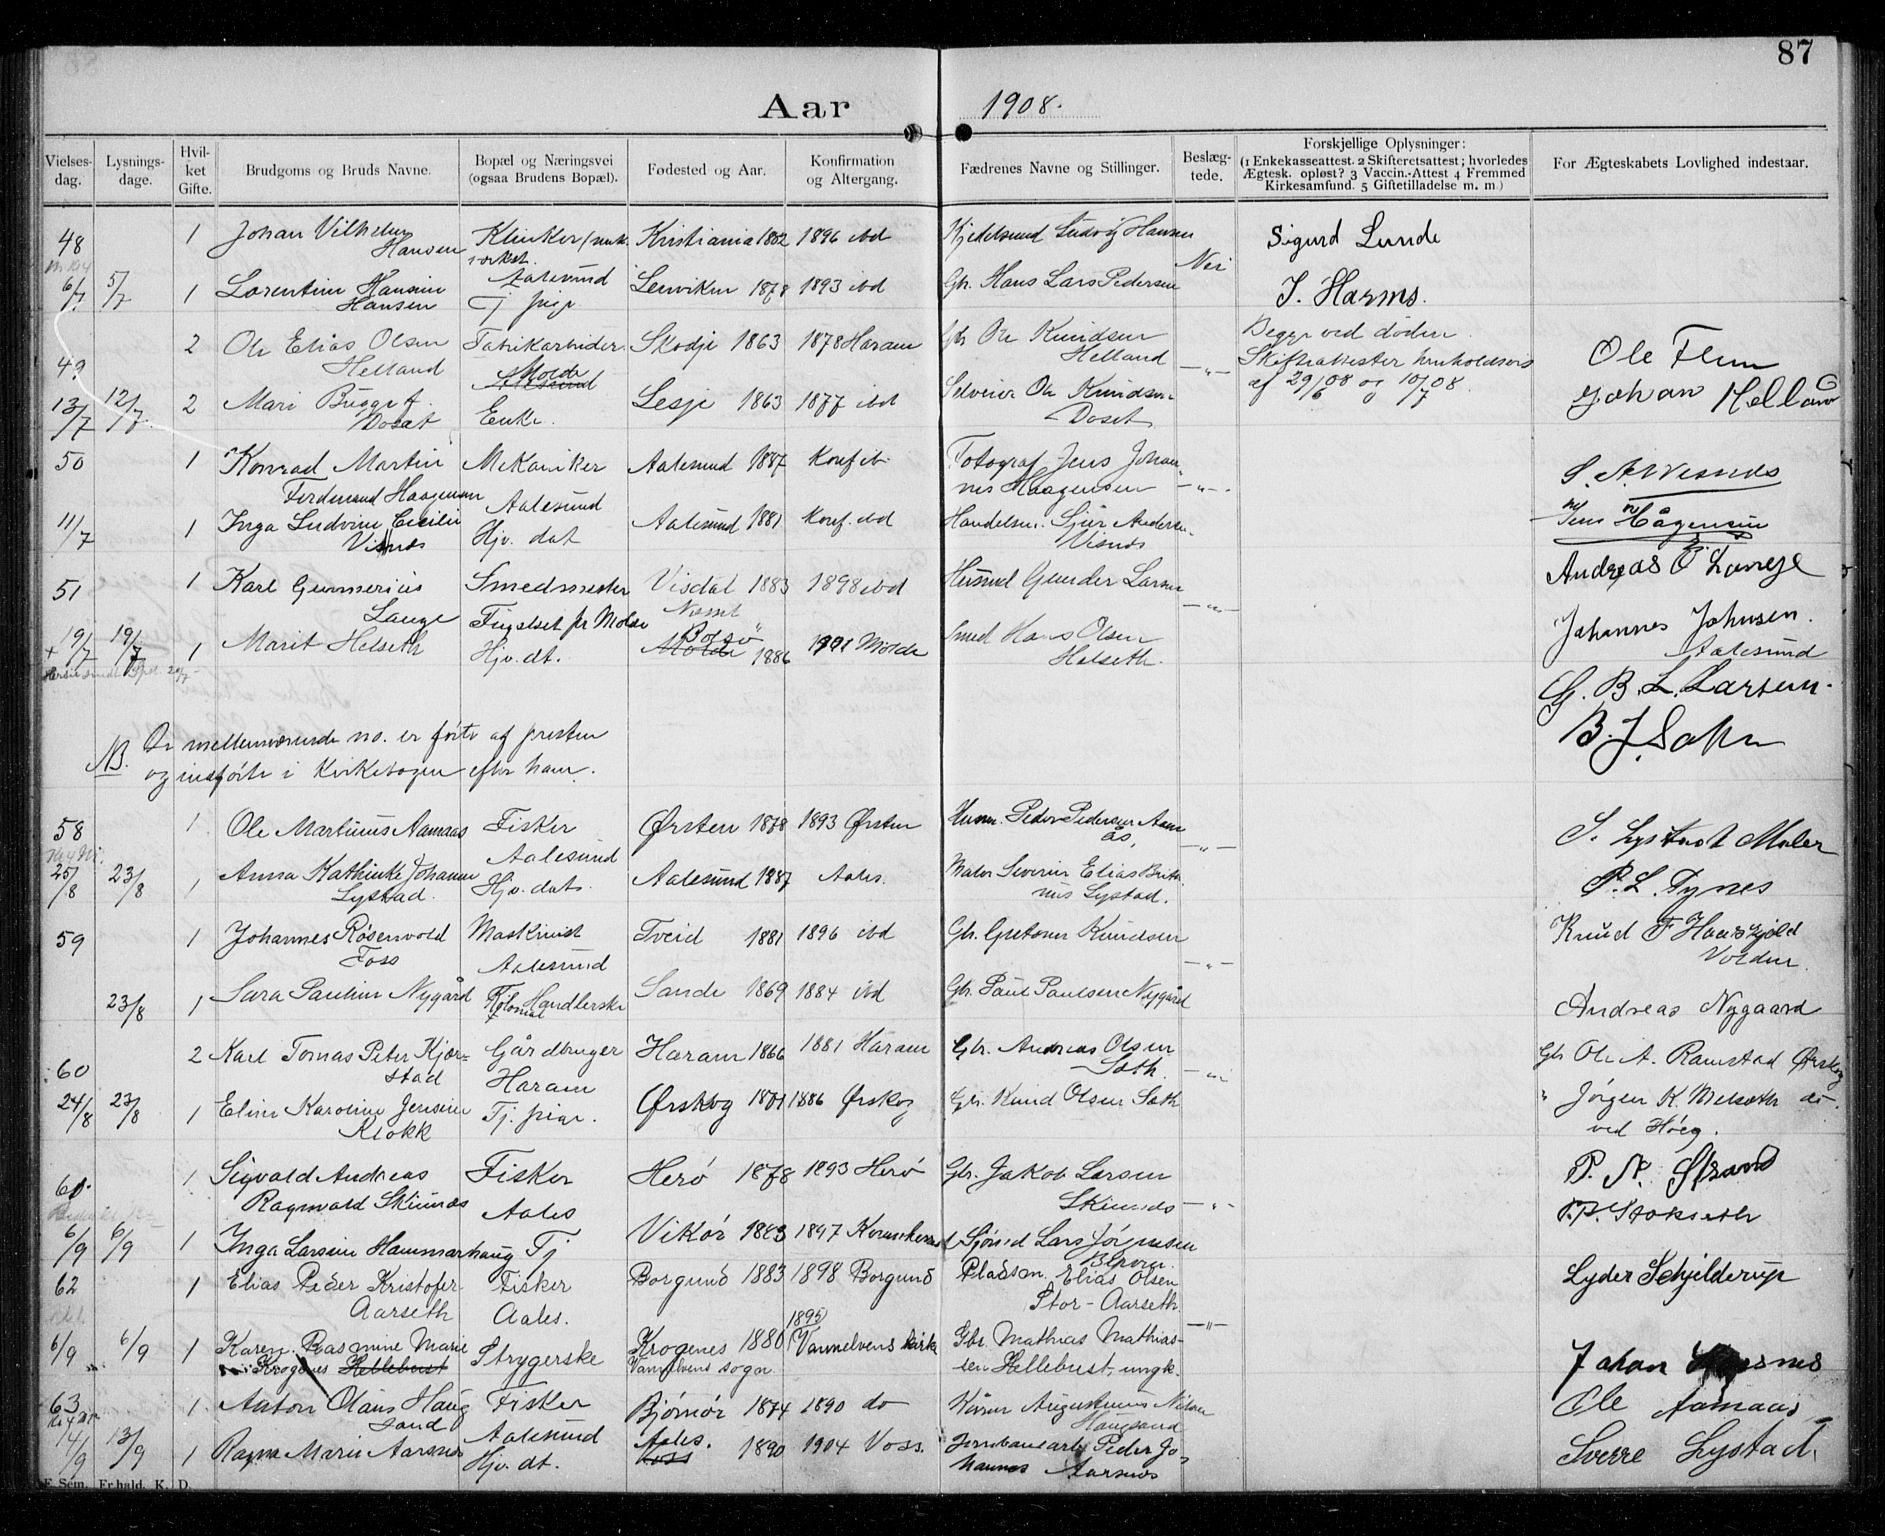 87
Aar 1908.
Vielses-dag. Lysnings-dage. Hvilket Gifte. Brudgoms og Bruds Navne. Bopæl og Næringsvei (ogsaa Brudens Bopæl). Fødested og Aar. Konfirmation og Altergang. Fædrenes Navne og Stillinger. Beslægtede. Forskjellige Oplysninger: (1 Enkekasseattest. 2 Skifteretsattest; hvorledes Ægtesk. opløst? 3 Vaccin.-Attest 4 Fremmed Kirkesamfund. 5 Giftetilladelse m. m.) For Ægteskabets Lovlighed indestaar.
48 1 Johan Vilhelm Klinker Kristiania 1882 1896 ibd Kjedelsmed Ludvig Hansen Sigurd Lunde
Hansen Aalesund Nei
6/7 5/7 1 Lorentine Hansine Tj pige Lenviken 1878 1893 ibd Gbr. Hans Lars Pedersen J. Harms.
Hansen
49 2 Ole Elias Olsen Fabrikarbeider Skodje 1863 1878 Haram Gbr Ole Knudsen Begge ved døden Ole Flem
Helland Molde Aalesund Helland —"— Skifteattester henholdsvis
13/7 12/7 2 Mari Bugge f. Enke. Lesje 1863 1877 ibd Selveier Ole Knudsen af 29/6 08 og 10/7 08. Johan Helland
Doset Doset
50 1 Konrad Martin Mekaniker Aalesund 1887 Konf. ib. Fotograf Jens Johan- S. A. Visnes
Ferdinand Haagensen Aalesund nes Haagensen —"—
11/7 1 Inga Ludvine Cecilie Hjv. dat Aalesund 1881 Konf. ibd Handelsm. Sjur Andersen Jens Hågensen
Visnes Visnes
51 1 Karl Gunnerius Smedmester Visdal 1883 1898 ibd Husmd Gunder Larsen Andreas O Lange
Lange Fugelset pr Molde Nesset —"—
19/7 19/7 1 Marit Helseth Hjv. dt. Bolsø Molde 1886 1901 Molde Smed Hans Olsen Johannes Johnsen.
Helseth. Aalesund
G. B. L. Larsen.
NB. De mellemværende no. er førte af presten
og indførte i Kirkebogen efter ham.
58 1 Ole Martinus Aamaas Fisker Ørsten 1878 1893 Ørsten Husm. Peder Pedersen Aam- S. Lystad Maler
Aalesund ås, —"—
25/8 23/8 1 Anna Kathinke Johanne Hjv. dat. Aalesund 1887 Aales. Maler Severin Elias P. L. Tynes
Lystad. Lystad.
59 1 Johannes Rosenvold Maskinist Tveid 1881 1896 ibd Gbr. Knudsen Knud
Foss Aalesund —"— Volden
23/8 1 Sara Pauline Nygård Kolonial Handlerske Sande 1869 1884 ibd Gbr. Paul Paulsen Nygård Andreas Nygaard
60 2 Karl Tomas Peter Kjær- Gårdbruger Haram 1866 1881 Haram Gbr. Andreas Olsen Gbr Ole A. Ramstad Ørskog
stad Haram —"—
24/8 23/8 1 Eline Karoline Jensine Tj. pige. Ørskog 1871 1886 Ørskog Gbr. Knud Olsen " Jørgen K. Melseth do.
Klokk ved Høeg.
61. 1 Sigvald Andreas Fisker Herø 1878 1893 Herø Gbr. Jakob Larsen P. N. Strand
Ragnvald Skinnes Aales Skinnes —"—
6/9 6/9 1 Inga Larsine Hammarhaug Tj Vikør 1883 1897 Sjømd Lars
62 1 Elias Peder Kristofer Fisker Borgund 1883 1898 Borgund Pladsm. Elias Olsen Lyder Schjelderup
Aarseth Aales. Stor-Aarseth.
6/9 6/9 1 Karen Rasmine Marie Strygerske Krogenes 1880 (1895) Vannelvens kirke —"— Gbr. Mathias Mathias-
Krogenes Hellebust Vannelvens sogn sen Hellebust, ungk. Johan
63 1 Anton Olaus Haug- Fisker Bjørnør 1874 1890 do Augustinus Nilsen Ole Aamaas
sand Aalesund Haugsand
14/9 13/9 1 Ragna Marie Aarsnes Hjv. dt. Aales. Voss 1890 1904 Voss. Jernbanearb. Peder Jo- Sverre Lystad.
hannes Aarsnes